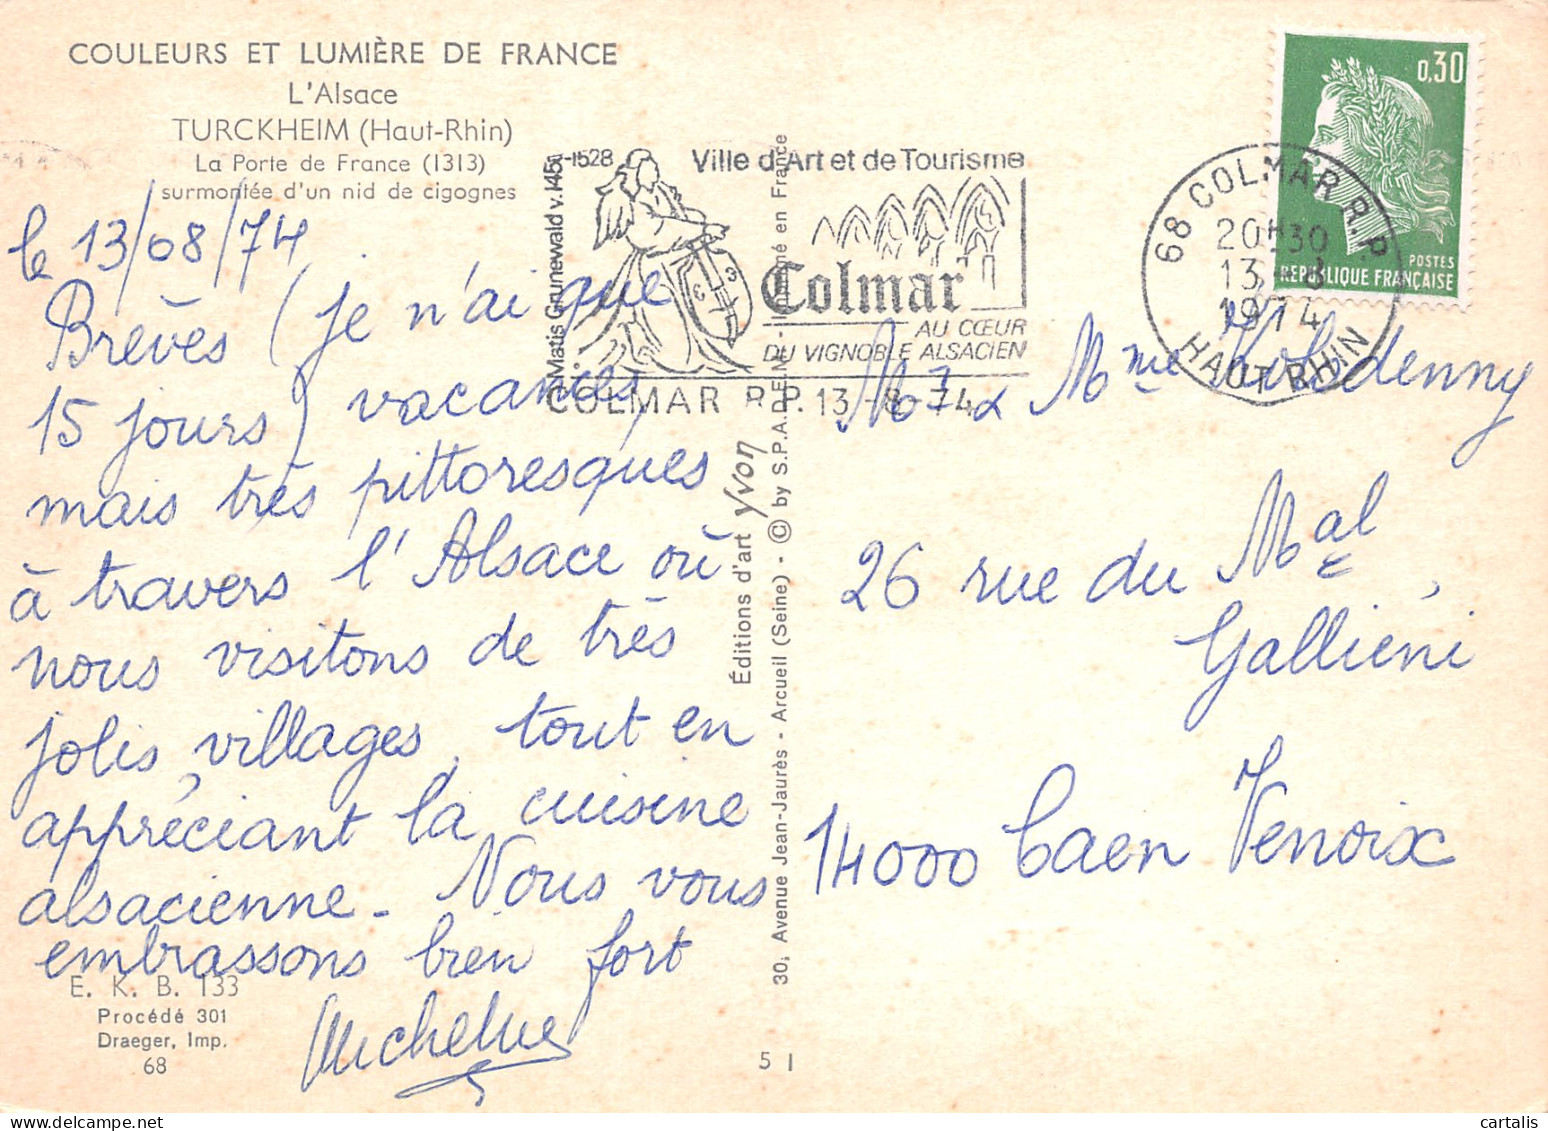 COULEURS ET LUMIÈRE DE FRANCE
L'Alsace
TURCKHEIM (Haut-Rhin)
La Porte de France (1313)
surmontée d'un nid de cigognes
le 13/08/74
Brèves (je n'ai que
15 jours) vacances,
mais très pittoresques
à travers l'Alsace où
nous visitons de très
jolis villages, tout en
appréciant la cuisine
alsacienne - Nous vous
embrassons bien fort
E. K. B. 133
Procédé 301
Draeger, Imp.
68
Matis Grunewald v. 145 -1528
Ville d'Art et de Tourisme
Colmar
AU CŒUR
DU VIGNOBLE ALSACIEN
COLMAR R.P. 13 -8 -74
Éditions d'art Yvon
30, Avenue Jean-Jaurès - Arcueil (Seine) - © by S.P.A.D.E.M. - Imprimé en France
5 |
0,30
POSTES
REPUBLIQUE FRANÇAISE
68 COLMAR R.P.
20H30
13 - 8
1974
HAUT RHIN
Mr & Mme
26 rue du Mal
Galliéni
14000 Caen Venoix